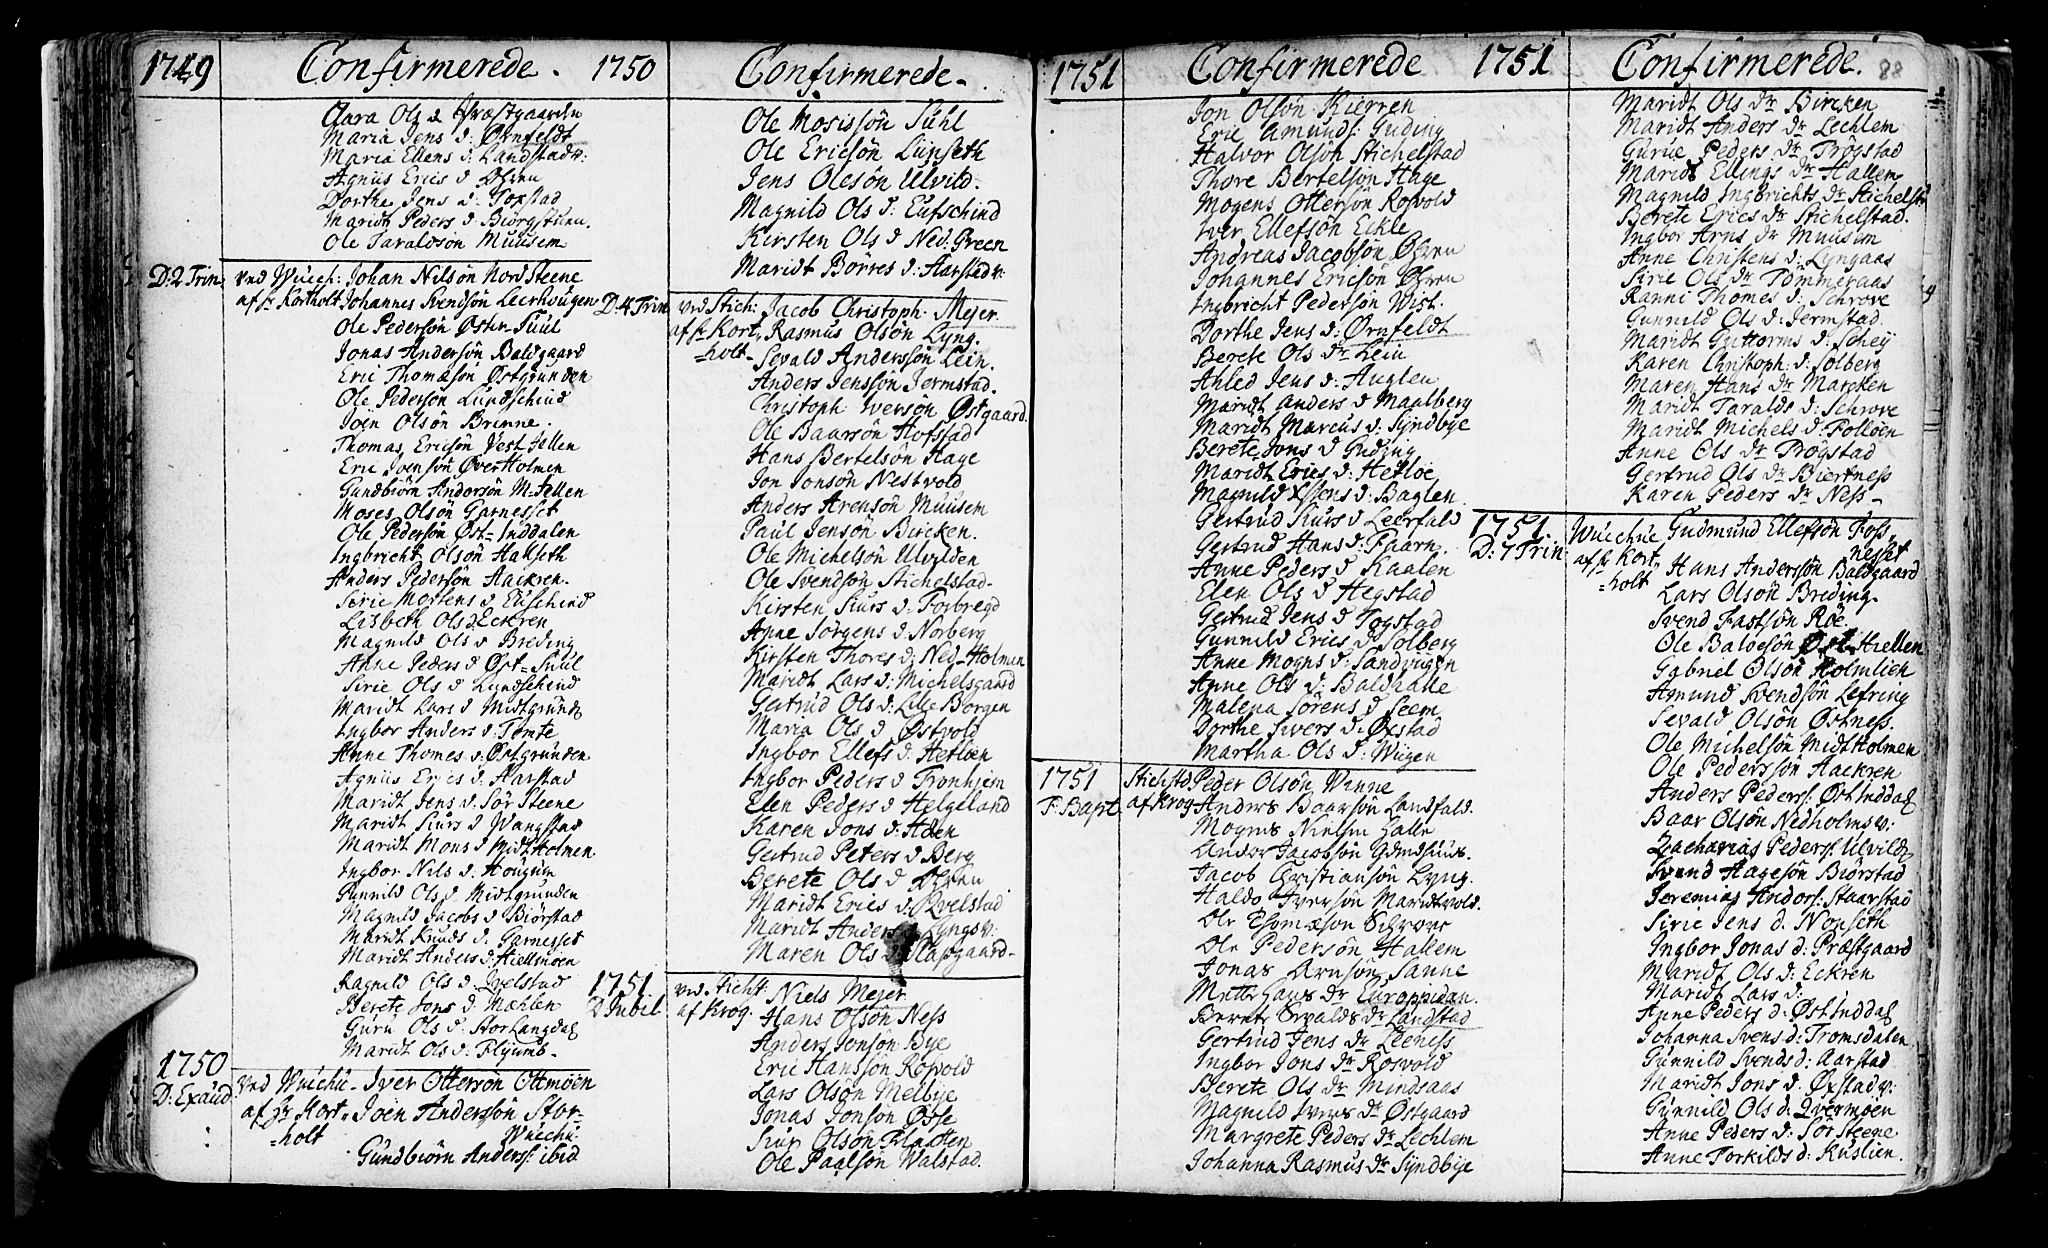 1749
Confirmerede.
Clara Ols d Præstgaarden
Maria Jens d: Ørnfeldt
Maria Ellens d: Landstadv:
Agniis Erics d Øhren
Dorthe Jens d: Togstad
Maridt Peders d Biørgstuen.
Ole Taraldsön Muusem
D: 2 Trin.
ved Wuech: Johan Nilsön Nordsteene
af hr Kortholt Johannes Svendsön Leerhougen
Ole Pedersön Østn Suul
Jonas Andersön Baldgaard
Eric Thomæsön Østgrunden
Ole Pedersön Lundschind
Joen Olsön Brinne.
Thomas Ericsön Vest Jellen
Eric Joensön Øver Holmen
Gundbiörn Andersön M-Jellen
Moses Olsön Garnesset
Ole Pedersön Øst-Inddalen
Ingbricht Olsön Hakseth
Anders Pedersön Aackren.
Sirie Mortens d Euschind
Lisbeth Ols d. Eckren
Magnild Ols d Breding
Anne Peders d Øst-Suul
Sirie Ols d Lundschind
Maridt Lars d Midtgrund
Ingbor Anders d: Tömte
Anne Thomes d: Østgrunden
Agniis Erics d: Aarstad
Maridt Jens d: Sör Steene
Maridt Siurs d Wangstad
Maridt Mons d Midt Holmen
Ingbor Nils d. Hougum
Gunnild Ols d Midtgrunden
Magnild Jacobs d Biörstad
Maridt Knuds d. Garnesset
Maridt Anders d: Hiellmoen
Ragnild Ols d. Qvelstad
Berete Jons d. Mæhlen
Guru Ols d. Stor Langdal
Maridt Ols d: Flyumb.
1750
D: Exaud:
ved Wuechu- Iver Ottersön Ottmoen
af hr Kort- Joen Andersön Stor-
=holt Wuechu.
Gundbiörn Anders: ibid
1750
Confirmerede.
Ole Mosissön Suhl
Ole Ericsön Lunseth
Jens Olesön Ulvild.
Magnild Ols d: Eufschind
Kirsten Ols d Ned. Green
Maridt Börres d: Aarstadv:
D: 4 Trin
ved Stich: Jacob Christoph. Mejer.
af hr Kort- Rasmus Olsön Lyng.
=holt- Sevald Anderssön Lein.
Anders Jenssön Jermstad.
Christoph Iversön Østgaard.
Ole Baarsön Hofstad
Hans Bertelsön Hage
Jon Jonsön Nestvold
Anders Arensön Muusem
Paul Jensön Bircken.
Ole Michelsön Ulvilden
Ole Svendsön Stichelstad.
Kirsten Siurs d: Forbregd
Anne Jörgens d: Norberg
Kirsten Thores d: Ned-Holman
Maridt Lars d: Michelsgaard
Gertrud Ols d: Lille Borgen
Maria Ols d Østvold
Ingbor Ellefs d: Hetloen
Ingbor Peders d Tronhjem
Elen Peders d Helgeland
Karen Jons d: Aden
Gertrud Peters d Berg
Berete Ols d Øhren
Maridt Erics d: Qvelstad
Maridt Anders Lyngsv:
Maren Ols d: Klapgaard-
1751
D Jubil
ved Sticht: Niels Mejer
af Krog. Hans Olsön Ness
Anders Jonsön Bye
Eric Hanssön Rosvold
Lars Olsön Melbye
Jonas Jonsön Øsse
Siur Olsön Flatten
Ole Paalsön Walstad.
1751
Confirmerede
Jon Olsön Kierren
Eric Amunds: Guding
Halvor Olsön Stichelstad
Thore Bertelsön Hage
Mogens Ottersön Rosvold
Iver Ellefsön Eckle
Andreas Jacobsön Øhren
Johannes Ericsön Øhren
Ingbricht Pedersön Wist.
Dorthe Jens d: Ørnfeldt
Berete Ols dr Lein
Ahled Jens d: Auglen
Maridt Anders d Maalberg
Maridt Marcus d: Syndbye
Berete Jons d Guding
Maridt Erics d: Hetloe
Magnild Essens d: Baglen
Gertrud Siurs d Leerfald
Gertrud Hans d: Faarn.
Anne Peders d Kaalen
Elen Ols d Hegstad
Gertrud Jens d Togstad
Gunnild Erics d Solberg
Anne Mogns d: Sandvigen
Anne Ols d: Baldhalle
Malena Sörens d Seem
Dorthe Sivers d: Øxstad
Martha Ols d: Wiigen
1751
F: Bapt.
Stichstd Peder Olsön Vinne
af Krog Anders Baarsön Landfald.
Mogens Nielsen Halle
Andor Jacobsön
Jacob Christiansön Lyng.
Haldo Iversön Maridtvold.
Ole Thomæson Schrove
Ole Pedersön Hallem
Jonas Arnsön Sanne
Mette Hans dr Europpidan.
Berete Sevalds dr Landstad
Gertrud Jens dr Leeness
Ingbor Jons dr Rosvold
Berete Ols dr Mindsaas
Magnild Ivers dr Østgaard
Margrete Peders dr Lechlem
Johanna Rasmus dr Syndbye
1751
Confirmerede.
88
Maridt Ols dr Bircken
Maridt Anders dr Lechlem
Gurue Peders dr Trogstad
Maridt Ellings dr Hallem
Magnild Ingbrichts dr Stichelst
Berete Erics dr Stichelstad.
Ingbor Arns dr Muusem
Anne Christens d: Lyngaas
Sirie Ols dr Tömmeraas
Ranni Thomes d: Schrove
Gunnild Ols d: Jermstad
Maridt Guttorms d: Schey
Karen Christoph: d: Solberg
Maren Hans dr Marcken
Maridt Taralds d: Schrove
Maridt Michels d: Folloen
Anne Ols dr Trogstad
Gertrud Ols dr Biertness
Karen Peders dr Ness-
1751.
D: 7 Trin:
Wuechue Gudmund Ellefsön Foss-
af hr Kort- neset
=holt Hans Anderssön Baldgaard
Lars Olsön Breding.
Svend Fastsön Röe.
Ole Baloesön Øst-Hiellen
Gabriel Olsön Holmlien
Amund Svendsön Lefring
Sevald Olsön Østness.
Ole Michelsön Midt Holmen
Ole Pederssön Aackren
Anders Peders: Øst Inddal
Baar Olsön Nedholmsv:
Zacharias Peders: Ulvild
Svend Hagesön Biörstad
Jeremias Anders: Staarstad
Sirie Jens d. Nonseth
Ingbor Jonas d: Præstgaard
Maridt Ols d: Eckren
Maridt Lars d:
Anne Peders d: Øst Inddal
Johanna Svens d: Tromsdalen
Gunnild Svends d: Aarstad
Maridt Jons d. Øxstadv:
Gunnild Ols d: Qvermoen
Anne Peders d: Sör Steene
Anne Torkilds d: Kuslien.